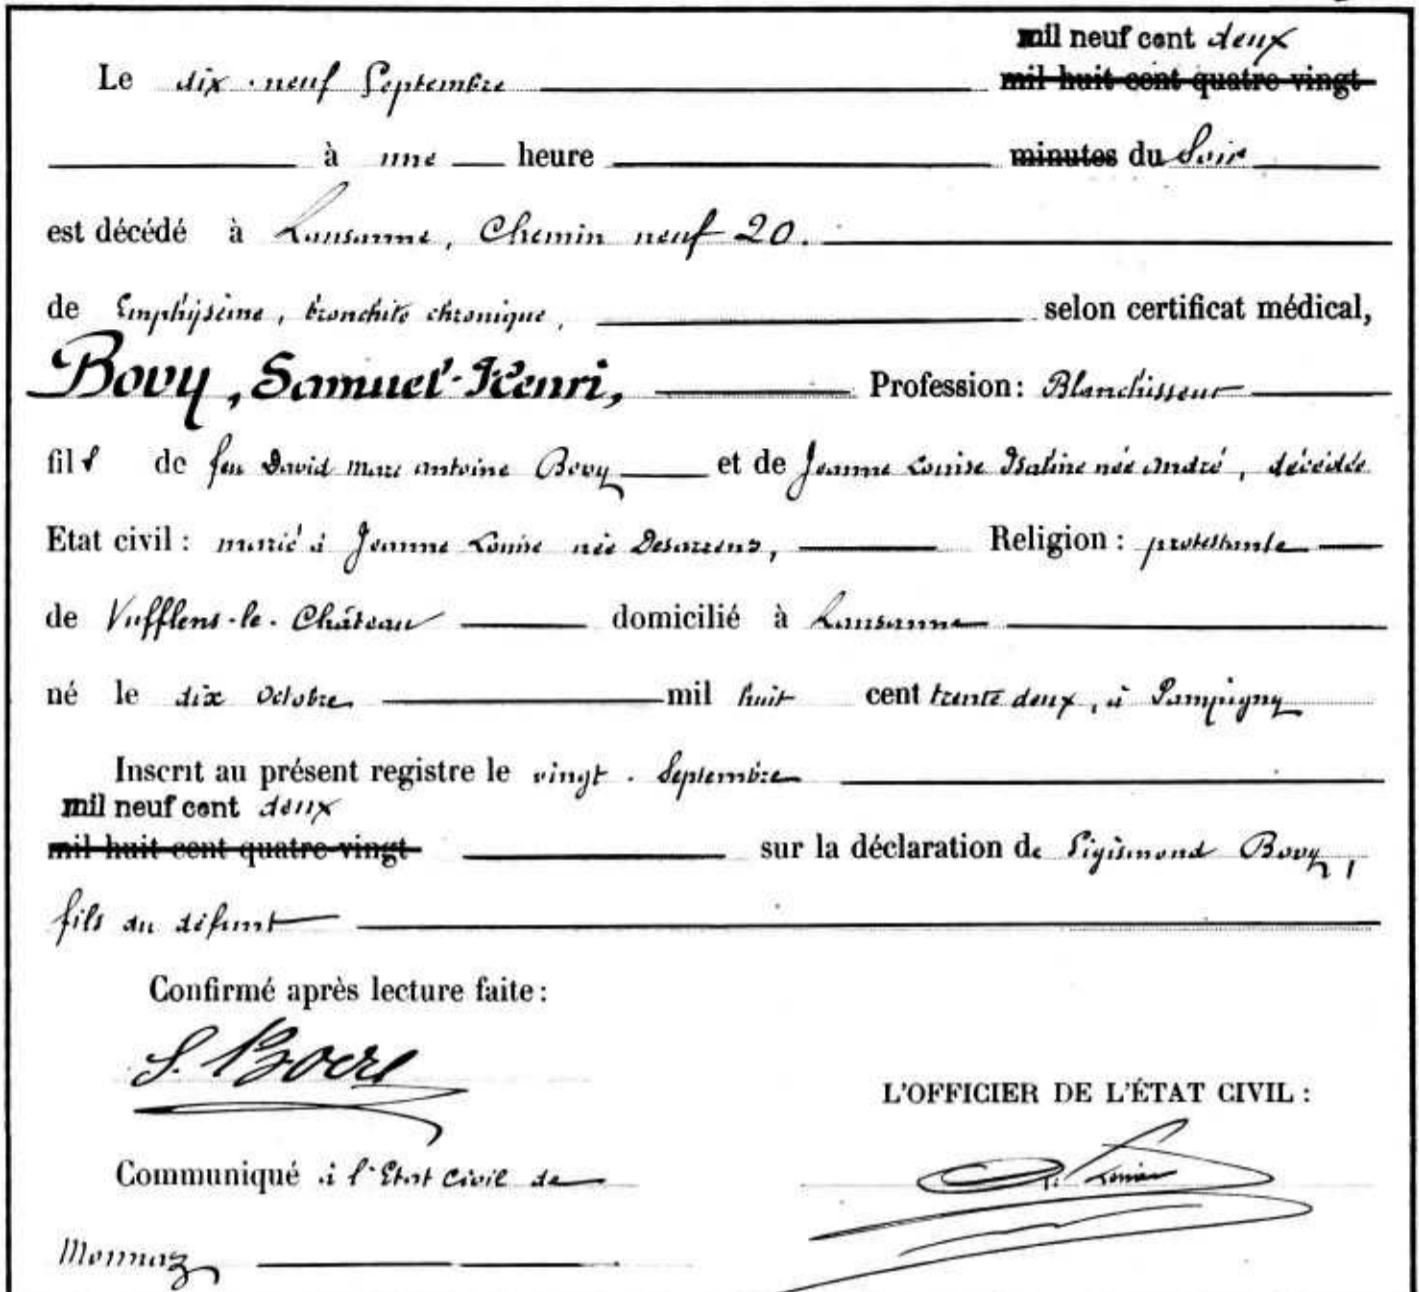 mil neuf cent deux
Le dix-neuf Septembre mil huit cent quatre vingt
à une heure minutes du Soir
est décédé à Lausanne, Chemin neuf 20.
de Emphysème, bronchite chronique, selon certificat médical,
Bovy, Samuel-Henri, Profession: Blanchisseur
fils de feu David Marc Antoine Bovy et de Jeanne Louise Isaline née André, décédée
Etat civil: marié à Jeanne Louise née Desarzens, Religion: protestante
de Vufflens-le-Château domicilié à Lausanne
né le dix Octobre mil huit cent trente deux, à Pampigny
Inscrit au présent registre le vingt Septembre
mil neuf cent deux
mil huit cent quatre-vingt sur la déclaration de Sigismond Bovy,
fils du défunt
Confirmé après lecture faite:
L'OFFICIER DE L'ÉTAT CIVIL:
Communiqué à l'Etat Civil de
Monnaz